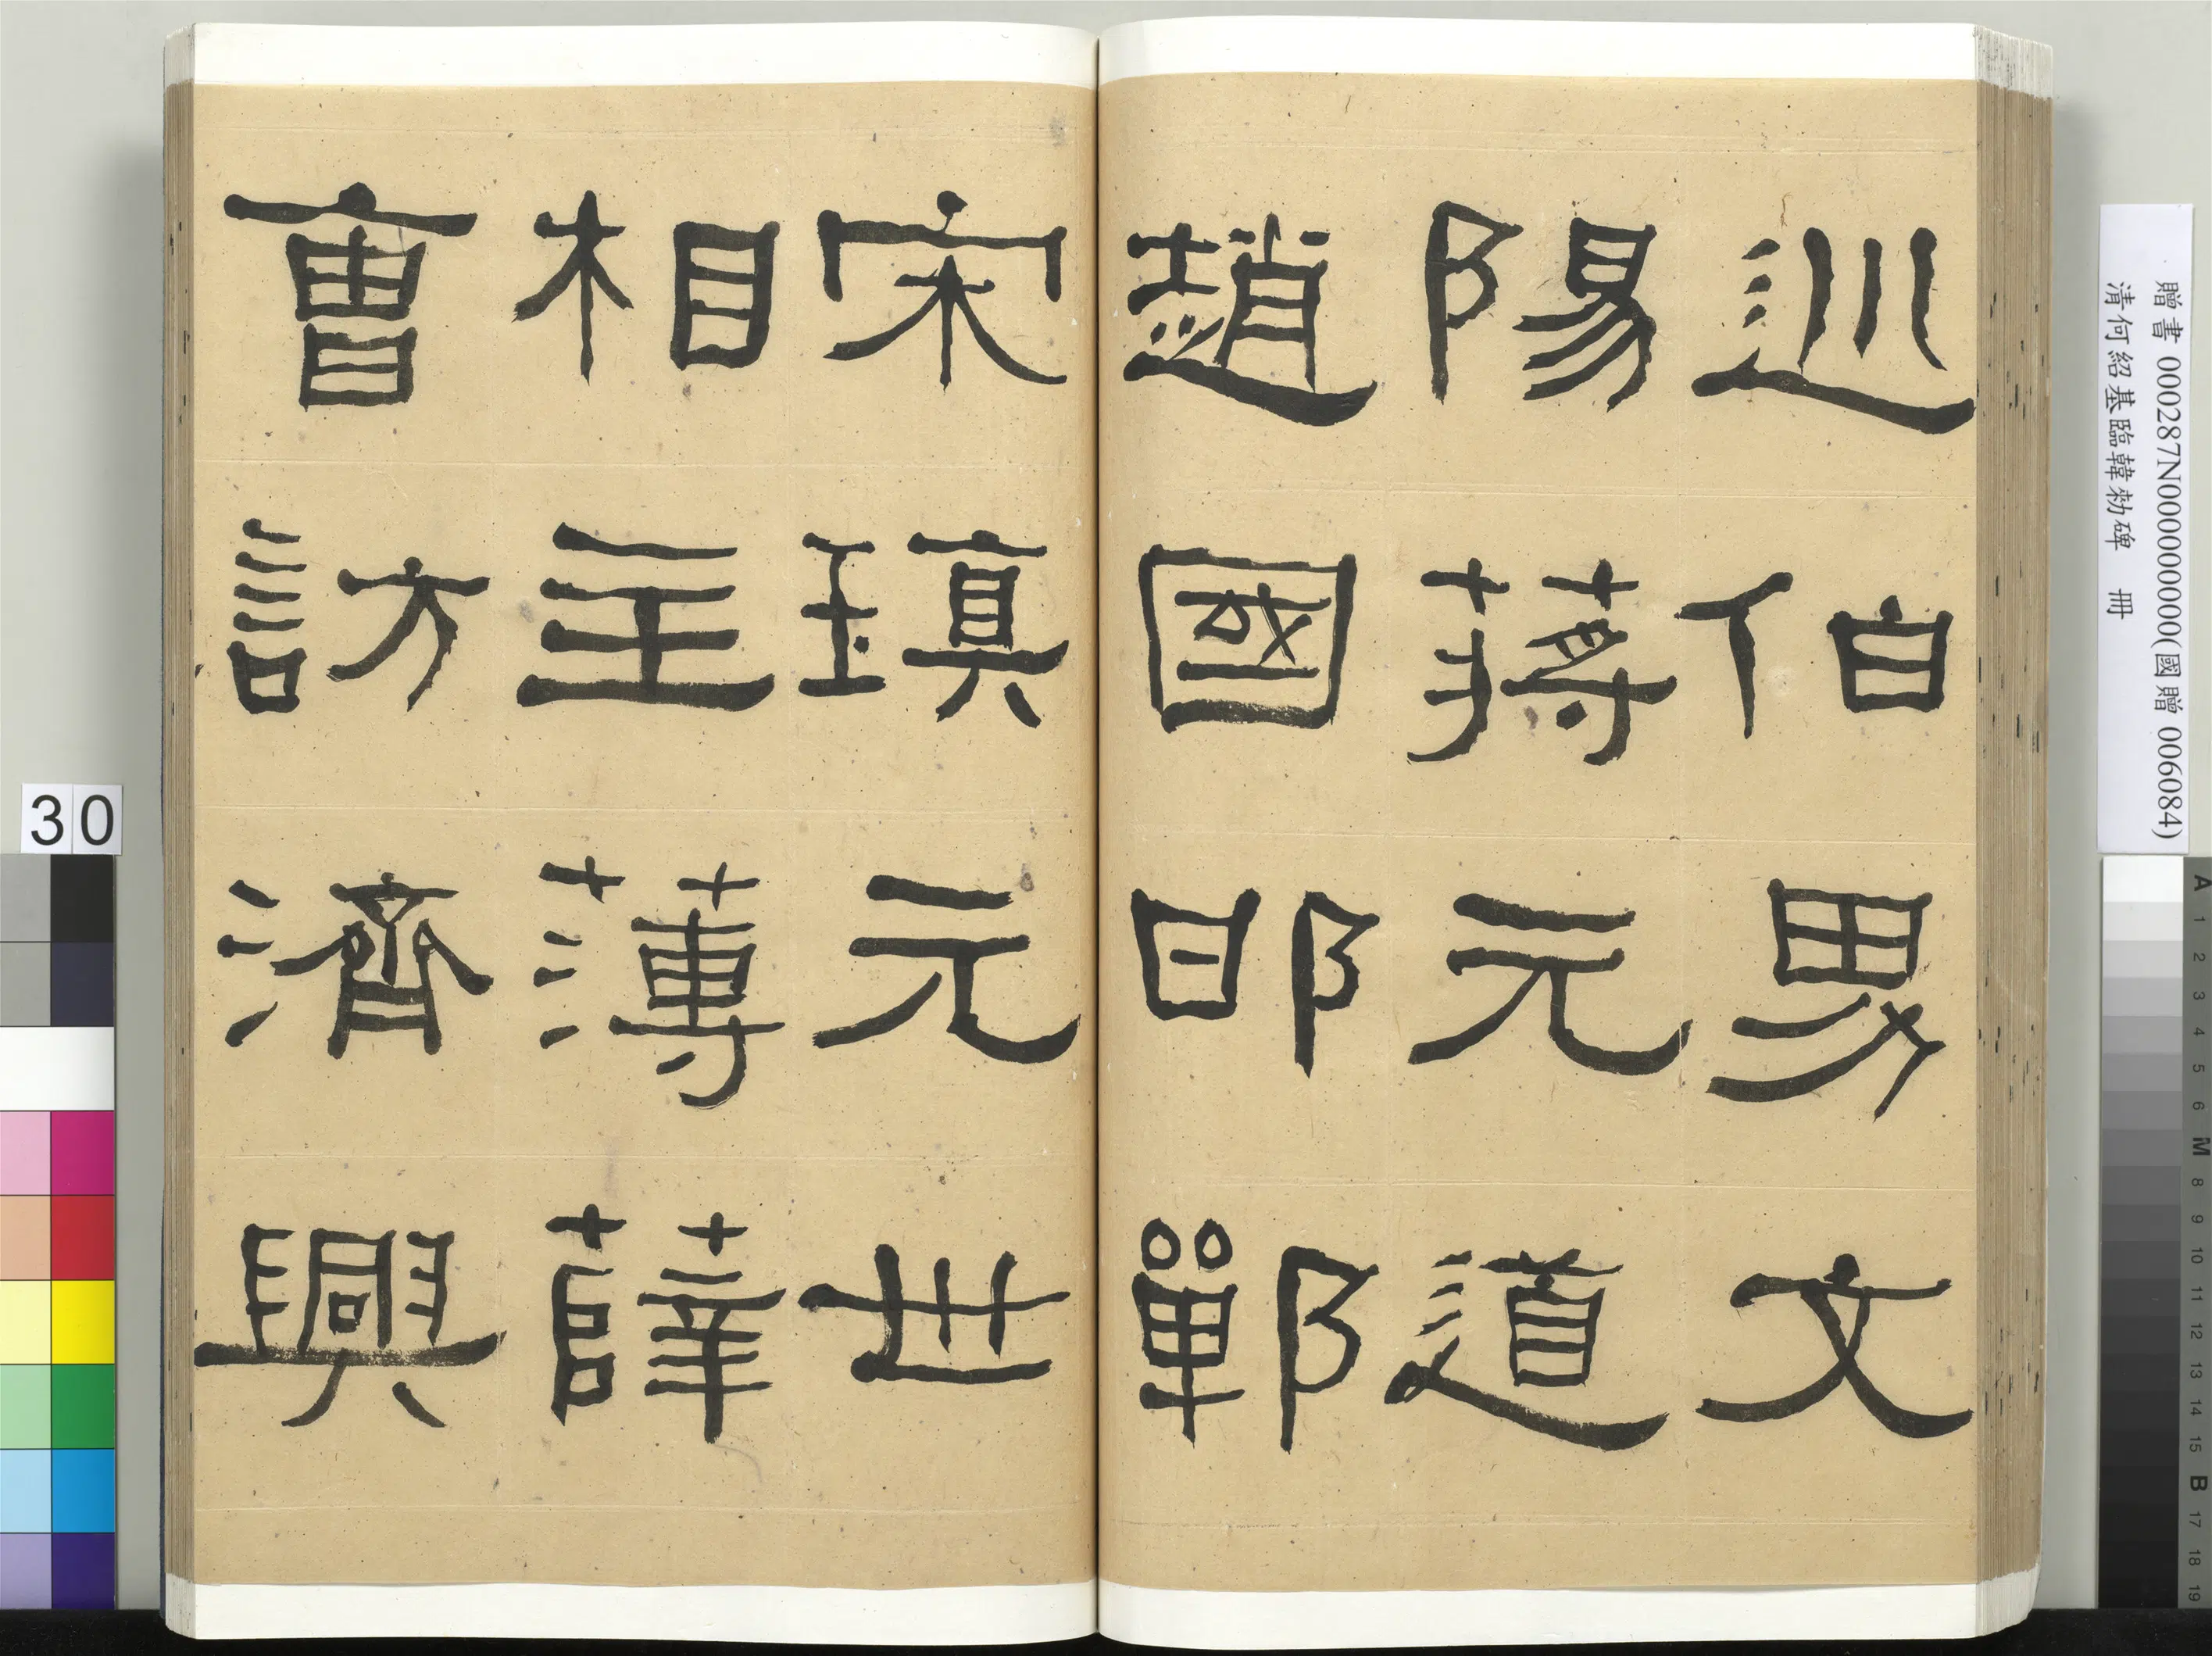 巡伯男文
陽蔣元道
趙國邯鄲
宋瑱元世
相主薄薛
曹訪濟興
贈書 000287N000000000(國贈 006084)
清何紹基臨韓勑碑 冊
30
A 1 2 3 4 5 6 M 8 9 10 11 12 13 14 15 B 17 18 19